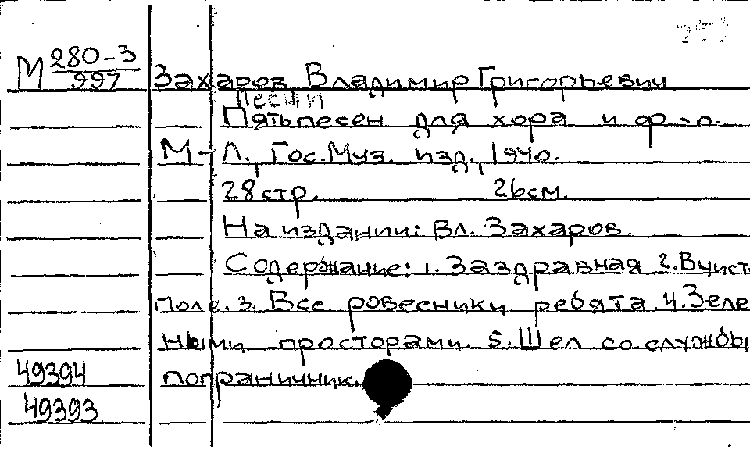 М 280-3
997
Захаров, Владимир Григорьевич
Песни
Пять песен для хора и ф.-п.
М-Л., Гос. Муз. изд., 1940.
28 стр. 26 см.
На издании: Вл. Захаров
Содержание: 1. Заздравная 2. В чист
поле. 3. Все ровесники ребята 4. Зеле
ными просторами. 5. Шел со службы
пограничник.
49394
49393